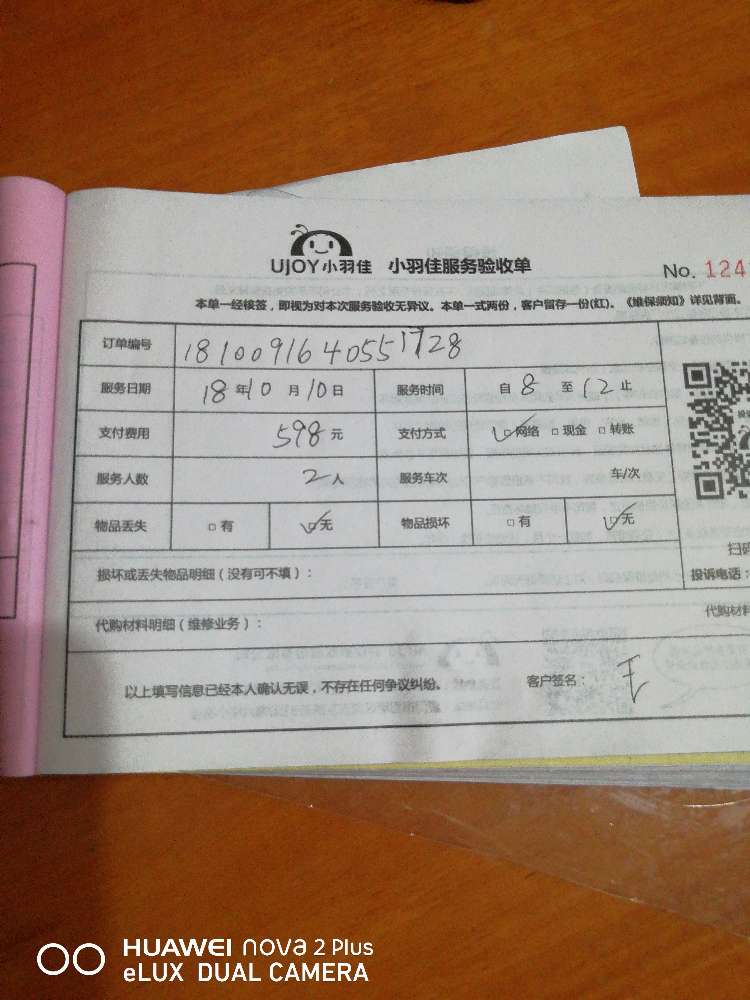 UJOY小羽佳 小羽佳服务验收单 No. 124
本单一经核签，即视为对本次服务验收无异议。本单一式两份，客户留存一份(红)。《维保须知》详见背面。
订单编号 18100916405517728
服务日期 18年10月10日 服务时间 自8至12止
支付费用 598元 支付方式 ☑网络 □现金 □转账
服务人数 2人 服务车次 车/次
物品丢失 □有 ☑无 物品损坏 □有 ☑无
扫码
损坏或丢失物品明细（没有可不填）： 投诉电话：
代购材料明细（维修业务）： 代购材料
以上填写信息已经本人确认无误，不存在任何争议纠纷。 客户签名：王
HUAWEI nova 2 Plus
eLUX DUAL CAMERA